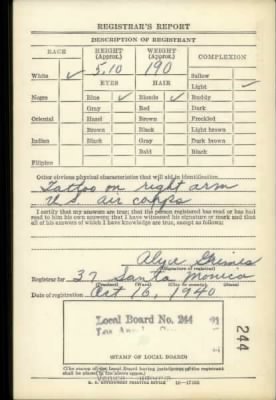 REGISTRAR'S REPORT
DESCRIPTION OF REGISTRANT
RACE HEIGHT (Approx.) WEIGHT (Approx.) COMPLEXION
White ✓ 5.10 190 Sallow
EYES HAIR Light ✓
Negro Blue ✓ Blonde ✓ Ruddy
Gray Red Dark
Oriental Hazel Brown Freckled
Brown Black Light brown
Indian Black Gray Dark brown
Bald Black
Filipino
Other obvious physical characteristics that will aid in identification
Tattoo on right arm
U.S. air corps
I certify that my answers are true; that the person registered has read or has had
read to him his own answers; that I have witnessed his signature or mark and that
all of his answers of which I have knowledge are true, except as follows:
(Signature of registrar)
Registrar for 37 Santa Monica
(Precinct) (Ward) (City or county) (State)
Date of registration Oct 16, 1940
Local Board No. 244
244
(STAMP OF LOCAL BOARD)
(The stamp of the Local Board having jurisdiction of the registrant
shall be placed in the above space.)
U. S. GOVERNMENT PRINTING OFFICE